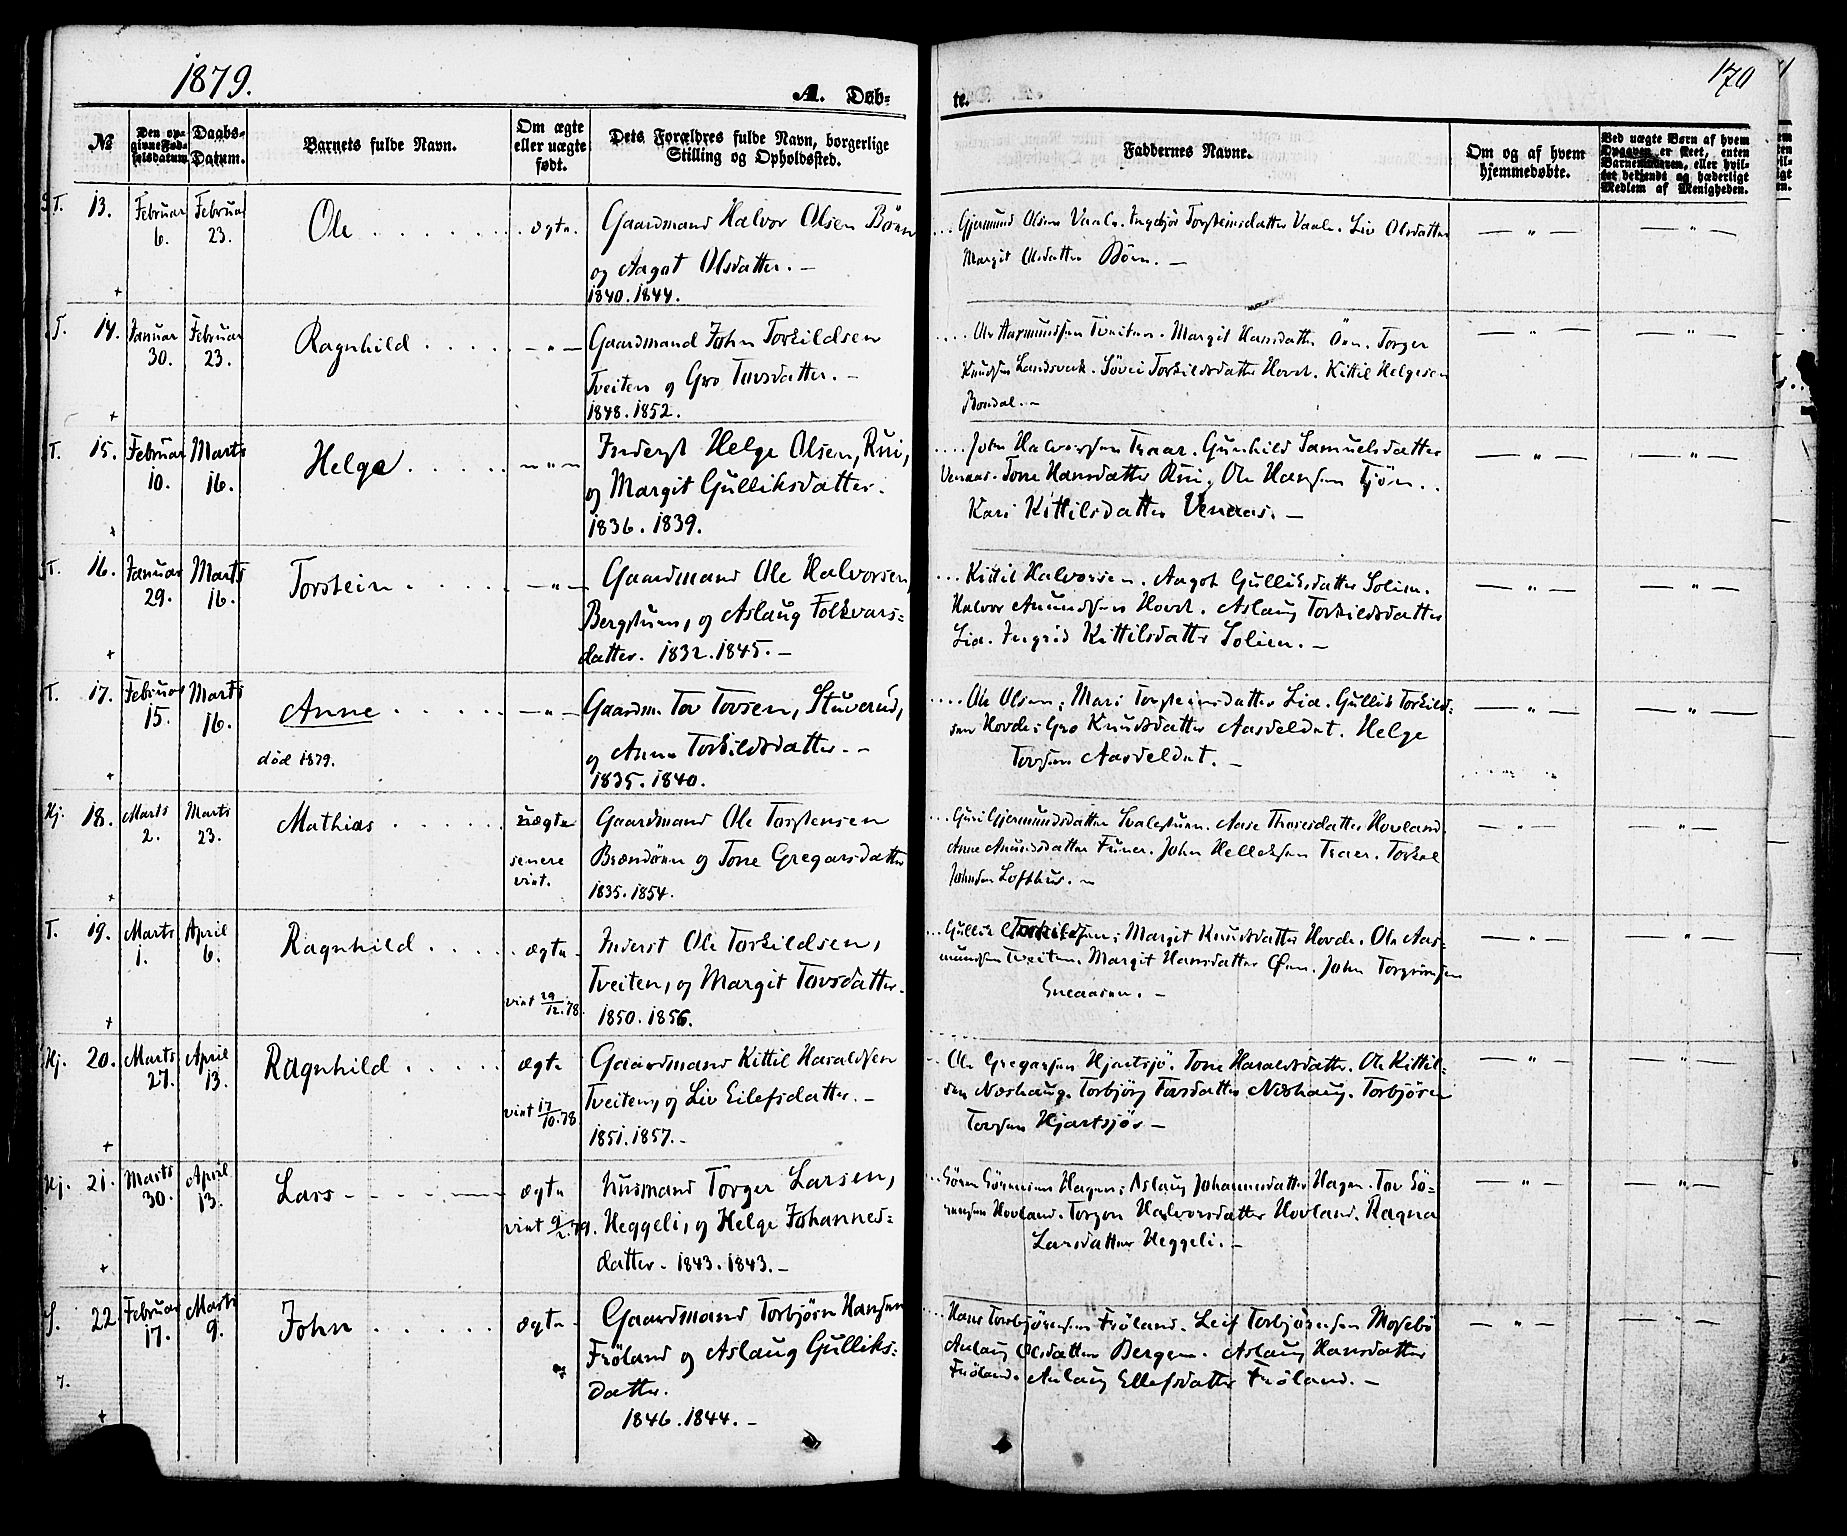 1879.
A. Døb-
te.
170
№
Den opginne Fødselsdatum.
Daabs-Datum.
Barnets fulde Navn.
Om ægte eller uægte født.
Dets Forældres fulde Navn, borgerlige Stilling og Opholdssted.
Faddernes Navne.
Om og af hvem hjemmedøbte.
Ved uægte Børn af hvem Opgaven er skeet, enten Barnemoderen, eller hvilket bekjendt og hæderligt Medlem af Menigheden.
T. 13. Februar 6. Februar 23. Ole ægte.
Gaardmand Halvor Olsen Bøen
og Aagot Olsdatter. —
1840. 1844.
Gjermund Olsen Vaale. Ingebjør Torsteinsdatter Vaale. Liv Olsdatter
Margit Olsdatter Bøen. —
T. 14. Januar 30. Februar 23. Ragnhild — " —
Gaardmand John Torkildsen
Tveiten og Gro Tovsdatter. —
1848. 1852.
Ole Aasmundsen Tveiten. Margit Hansdatter Øen. Torger
Knudsen Landsverk. Søvei Torkildsdatter Hovde. Kittil Helgesen
Bondal. —
T. 15. Februar 10. Marts 16. Helge — " —
Inderst Helge Olsen, Rui,
og Margit Gulliksdatter.
1836. 1839.
John Halvorsen Traar. Gunhild Samuelsdatter
Venaas. Tone Hansdatter Rui, Ole Hansen Tjøn.
Kari Kittilsdatter Venaas. —
T. 16. Januar 29. Marts 16. Torstein — " —
Gaardmand Ole Halvorsen,
Bergstuen, og Aslaug Folkvars-
datter. 1832. 1845. —
Kittil Halvorsen. Aagot Gulliksdatter Solien.
Halvor Amundsen Hovde. Aslaug Torkildsdatter
Lia. Ingrid Kittilsdatter Solien. —
T. 17. Februar 15. Marts 16. Anne — " —
død 1879.
Gaardm. Tov Tovsen, Stuverud,
og Anne Torkildsdatter. —
1835. 1840.
Ole Olsen; Mari Torsteinsdatter Lia. Gullik Torkild-
sen Hovde; Gro Knudsdatter Aasdeldet. Helge
Tovsen Aasdeldet. —
Hj. 18. Marts 2. Marts 23. Mathias uægte
senere
vint.
Gaardmand Ole Torstensen
Brændøen og Tone Gregarsdatter
1835. 1854.
Guri Gjermundsdatter Svalestuen. Aase Thoresdatter Hovland.
Anne Amundsdatter Funer. John Helleksen Traer. Torkel
Johnsen Lofthus. —
T. 19. Marts 1. April 6. Ragnhild ægte
vint 29/12.78.
Inderst Ole Torkildsen,
Tveiten, og Margit Tovsdatter.
1850. 1856.
Gullik Torkildsen; Margit Knudsdatter Hovde. Ole Aas-
mundsen Tveiten. Margit Hansdatter Øen. John Torgrimsen
Sneaasen. —
Hj. 20. Marts 27. April 13. Ragnhild ægte
vint 17/10.78
Gaardmand Kittil Haraldsen
Tveiten, og Liv Eilefsdatter. —
1851. 1857. —
Ole Gregarsen Hjartsjø. Tone Haraldsdatter. Ole Kittil-
sen Næshaug. Torbjørg Tovsdatter Næshaug. Torbjørn
Tovsen Hjartsjø —
Hj. 21. Marts 30. April 13. Lars ægte
vint 9/2.79.
Husmand Torger Larsen,
Heggeli, og Helge Johannes-
datter. 1843. 1843. —
Søren Sørensen Hagen; Aslaug Johannesdatter Hagen. Tov Sø-
rensen Hovland. Torgon Halvorsdatter Hovland. Ragna
Larsdatter Heggeli. —
S. 22. Februar 17. Marts 9. John ægte
7.
Gaardmand Torbjørn Hansen
Frøland og Aslaug Gulliks-
datter.
1846. 1844. —
Hans Torbjørnsen Frøland. Leif Torbjørnsen Mosebø
Anlaug Olsdatter Bergen. Aslaug Hansdatter
Frøland. Anlaug Ellefsdatter Frøland. —